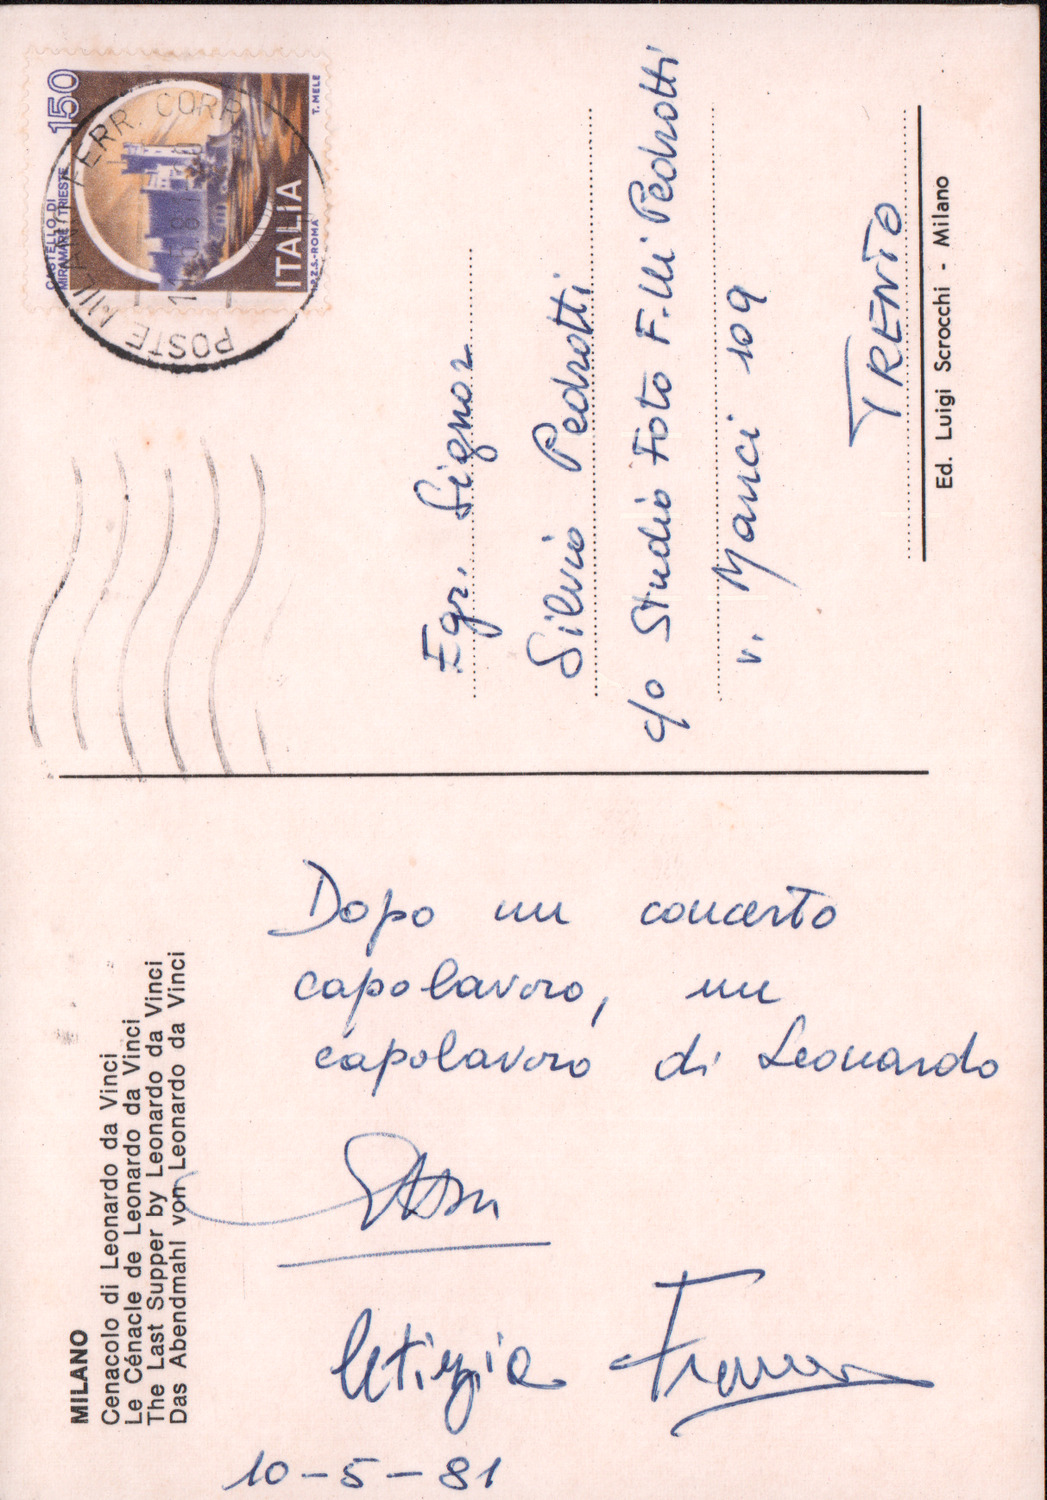 MILANO
Cenacolo di Leonardo da Vinci
Le Cénacle de Leonardo da Vinci
The Last Supper by Leonardo da Vinci
Das Abendmahl von Leonardo da Vinci
Dopo un concerto
capolavoro, un
capolavoro di Leonardo
Letizia Franca
10-5-81
150
CASTELLO DI
MIRAMARE / TRIESTE
ITALIA
I.P.Z.S.-ROMA
T. MELE
POSTE MILANO FERR. CORR
Egr. Signor
Silvio Pedrotti
c/o Studio Foto F.lli Pedrotti
v. Manci 109
TRENTO
Ed. Luigi Scrocchi - Milano